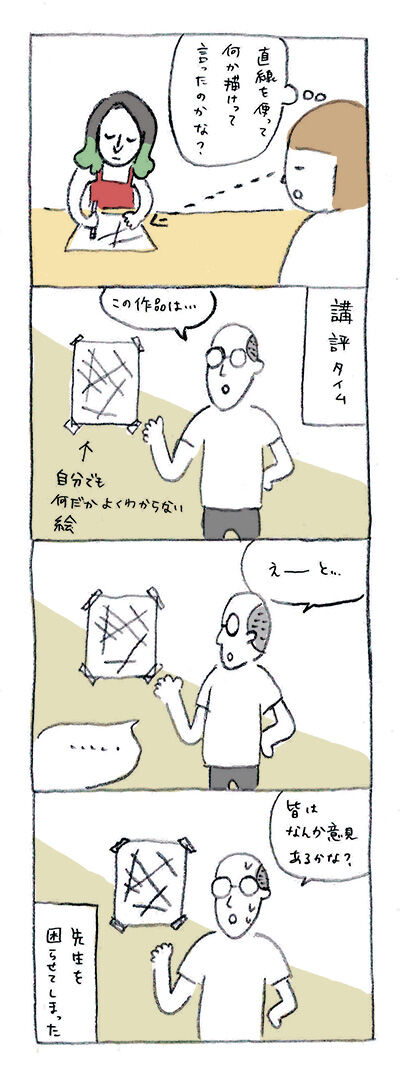 直線を使って
何か描けって
言ったのかな?
講評タイム
この作品は…
自分でも
何だかよくわからない
絵
えーと…
・・・・・
皆は
なんか意見
あるかな?
先生を
困らせてしまった